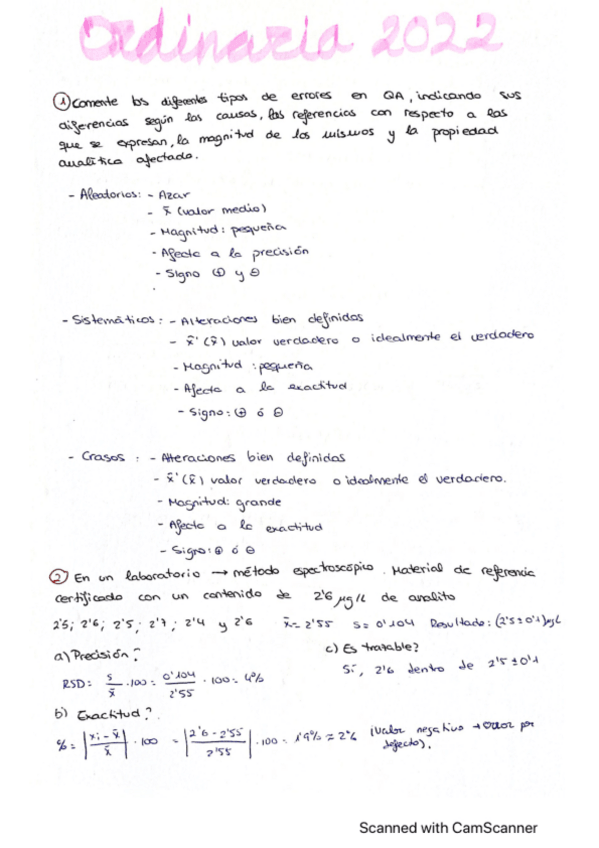 Ordinaria 2022
① Comente los diferentes tipos de errores en QA, indicando sus
diferencias según las causas, las referencias con respecto a las
que se expresan, la magnitud de los mismos y la propiedad
analítica afectada.
- Aleatorios: - Azar
- x̄ (valor medio)
- Magnitud: pequeña
- Afecta a la precisión
- Signo ⊕ y ⊖
- Sistemáticos: - Alteraciones bien definidas
- x̂' (x̂) valor verdadero o idealmente el verdadero
- Magnitud: pequeña
- Afecta a la exactitud
- Signo: ⊕ ó ⊖
- Crasos: - Alteraciones bien definidas
- x̂' (x̂) valor verdadero o idealmente el verdadero.
- Magnitud: grande
- Afecta a la exactitud
- Signo: ⊕ ó ⊖
② En un laboratorio → método espectroscópico. Material de referencia
certificado con un contenido de 2'6 μg/L de analito
2'5; 2'6; 2'5; 2'7; 2'4 y 2'6 x̄ = 2'55 s = 0'104 Resultado: (2'5 ± 0'1) μg/L
a) Precisión? c) Es trazable?
RSD: s/x̄ · 100 = 0'104/2'55 · 100 = 4% Sí, 2'6 dentro de 2'5 ± 0'1
b) Exactitud?
% = |xi - x̄ / x̄| · 100 = |2'6 - 2'55 / 2'55| · 100 = 1'9% = 2% (valor negativo → error por
defecto).
Scanned with CamScanner